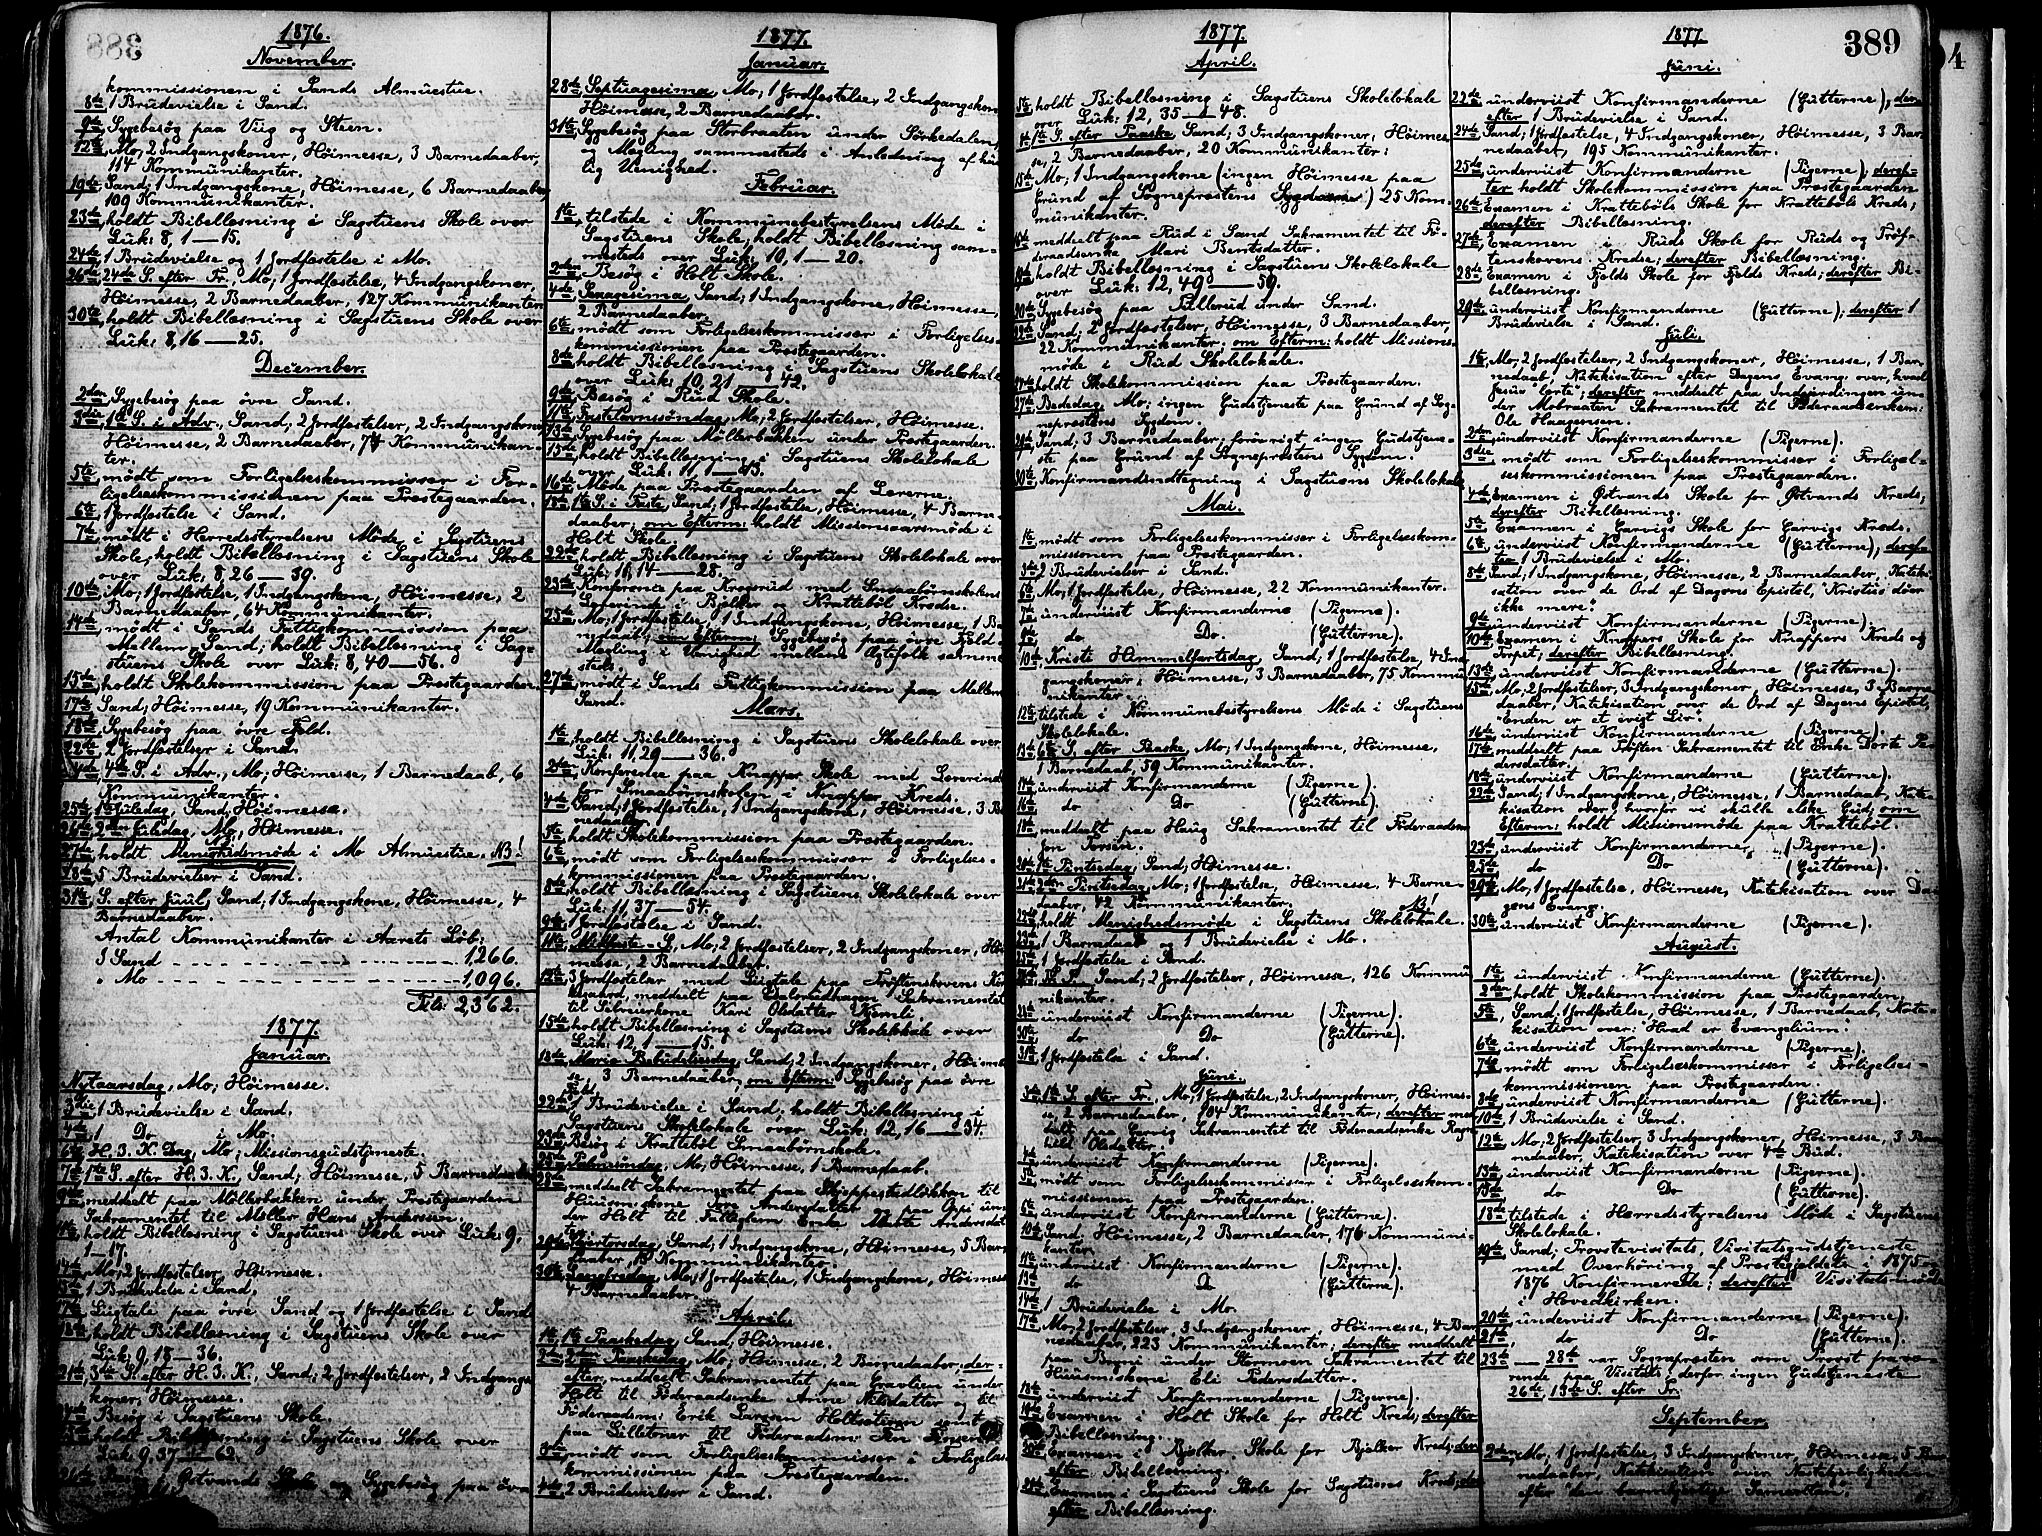 388
1876.
November.
kommissionen i Sands Almuestue.
8de 1 Brudevielse i Sand.
9de Sygebesøg paa Viig og Steen.
12te Mo, 2 Indgangskoner, Høimesse, 3 Barnedaaber,
114 Kommunikanter.
19de Sand; 1 Indgangskone, Høimesse, 6 Barnedaaber,
109 Kommunikanter.
23de holdt Bibellæsning i Sagstuens Skole over
Luk: 8, 1—15.
24de 1 Brudevielse og 1 Jordfæstelse i Mo.
26de 24de S. efter Tr., Mo; 1 Jordfæstelse, 4 Indgangskoner,
Høimesse, 2 Barnedaaber, 127 Kommunikanter.
30te holdt Bibellæsning i Sagstuens Skole over
Luk: 8, 16—25.
December.
2den Sygebesøg paa øvre Sand.
3die 1te S. i Adv., Sand; 2 Jordfæstelser, 2 Indgangskoner
Høimesse, 2 Barnedaaber, 74 Kommunikan-
ter.
5te mødt som Forligelseskommissær i For-
ligelseskommissionen paa Præstegaarden.
6te 1 Jordfæstelse i Sand.
7de mødt i Herredsstyrelsens Møde i Sagstuens
Skole, holdt Bibellæsning i Sagstuens Skole
over Luk: 8, 26—39.
10de Mo; 1 Jordfæstelse, 1 Indgangskone, Høimesse, 2
Barnedaaber, 64 Kommunikanter.
14de mødt i Sands Fattigkommission paa
Mellem Sand; holdt Bibellæsning i Sag-
stuens Skole over Luk: 8, 40—56.
15de holdt Skolekommission paa Præstegaarden.
17de Sand; Høimesse, 19 Kommunikanter.
18de Sygebesøg paa øvre Fjeld.
22de 2 Jordfæstelser i Sand.
24de 4de S. i Adv., Mo; Høimesse, 1 Barnedaab, 6
Kommunikanter.
25de 1te Juledag, Sand, Høimesse.
26de 2den Juledag, Mo; Høimesse.
27de holdt Menighedsmøde i Mo Almuestue. NB!
28de 5 Brudevielser i Sand.
31te S. efter Juul, Sand; 1 Indgangskone, Høimesse, 4
Barnedaaber.
Antal Kommunikanter i Aarets Løb:
I Sand - - - 1266.
" Mo - - - 1096.
Tils: 2362.
1877.
Januar.
Nytaarsdag, Mo; Høimesse.
3die 1 Brudevielse i Sand.
4de 1 Do i Mo.
6te H. 3. K. Dag, Mo; Missionsgudstjeneste.
7de 1te S. efter H. 3. K., Sand; Høimesse, 5 Barnedaaber
9de meddeelt paa Møllerbakken under Præstegaarden
Sakramentet til Møller Hans Andersen.
11te holdt Bibellæsning i Sagstuens Skole over Luk: 9,
1—17.
14de Mo; 2 Jordfæstelser, Høimesse.
15de 1 Brudevielse i Sand.
17de Liigtale paa øvre Sand og 1 Jordfæstelse i Sand
18de holdt Bibellæsning i Sagstuens Skole over
Luk: 9, 18—36.
21de 3die S. efter H. 3. K., Sand; 2 Jordfæstelser, 2 Indgangs-
koner, Høimesse.
Besøg i Sagstuens Skole.
holdt Bibellæsning i Sagstuens Skole over
Luk: 9, 37—62.
Østvands Skole og Sygebesøg paa øvre
1877.
Januar.
28de Septuagesima, Mo; 1 Jordfæstelse, 2 Indgangskoner
Høimesse, 2 Barnedaaber.
31te Sygebesøg paa Storbraaten under Sørkedalen,
og Mægling sammesteds i Anledning af huus-
lig Uenighed.
Februar.
1te tilstede i Kommunebestyrelsens Møde i
Sagstuens Skole, holdt Bibellæsning sam-
mesteds over Luk: 10, 1—20.
2den Besøg i Holt Skole.
4de Sexagesima, Sand; 1 Indgangskone, Høimesse,
2 Barnedaaber.
6te mødt som Forligelseskommissær i Forligelses-
kommissionen paa Præstegaarden.
8de holdt Bibellæsning i Sagstuens Skolelokale
over Luk: 10, 21—42.
9de Besøg i Ruud Skole.
11te Fastelavnssøndag, Mo; 2 Jordfæstelser, Høimesse.
13de Sygebesøg paa Møllerbakken under Præstegaarden.
15de holdt Bibellæsning i Sagstuens Skolelokale
over Luk: 11, 1—13.
16de Møde paa Præstegaarden af Lærerne.
18de 1te S. i Faste, Sand; 1 Jordfæstelse, Høimesse, 4 Barne-
daaber; om Efterm: holdt Missionsaarsmøde i
Holt Skole.
22de holdt Bibellæsning i Sagstuens Skolelokale over
Luk: 11, 14—28.
23de Konference paa Kragerud med Smaabørnskolens
Lærerinde i Bjølker og Kratteböl Kredse.
25de Mo; 1 Jordfæstelse, 1 Indgangskone, Høimesse, 1 Bar-
nedaab; om Efterm: Sygebesøg paa øvre Fjeld
Mægling i Uenighed mellem Ægtefolk samme-
steds.
27de mødt i Sands Fattigkommission paa Mellem
Sand.
Mars.
1te holdt Bibellæsning i Sagstuens Skolelokale over
Luk: 11, 29—36.
2den Konference paa Knapper Skole med Lærerinden
for Smaabørnskolen i Knapper Kreds.
4de Sand; 1 Jordfæstelse, 1 Indgangskone, Høimesse, 3 Bar-
nedaaber.
5te holdt Skolekommission paa Præstegaarden.
6te mødt som Forligelseskommissær i Forligelses-
kommissionen paa Præstegaarden.
8de holdt Bibellæsning i Sagstuens Skolelokale over
Luk: 11, 37—54.
9de 1 Jordfæstelse i Sand.
11te Midfaste-S, Mo; 2 Jordfæstelser, 2 Indgangskoner, Høi-
messe, 2 Barnedaaber.
3 Jordfæstelser med Liigtale paa Trøftenskovens Kir-
kegaard, meddeelt paa Dalmedhagen Sakramentet
til Selveierkone Kari Olsdatter Kjemli.
15de holdt Bibellæsning i Sagstuens Skolelokale over
Luk: 12, 1—15.
18de Mariæ Bebudelsesdag, Sand; 2 Indgangskoner, Høimes-
se, 3 Barnedaaber; om Efterm: Sygebesøg paa øvre
22de 1 Brudevielse i Sand; holdt Bibellæsning i
Sagstuens Skolelokale over Luk: 12, 16—34.
23de Besøg i Kratteböl Smaabørnskole.
25de Palmesøndag, Mo; Høimesse, 1 Barnedaab.
28de meddeelt Sakramentet paa Skjeppestadløkken til
Huusm:skone Andersdatter og paa Oppi un-
der Holt til Fattiglem Enke Marte Andersdat-
ter.
29de Skjærtorsdag, Sand; 1 Indgangskone, Høimesse, 5 Barne-
daaber, 13 Kommunikanter.
30te Langfredag, Mo; 1 Jordfæstelse, 1 Indgangskone, Høimesse
4 Barnedaaber.
April.
1te 1te Paaskedag, Sand, Høimesse.
2den 2den Paaskedag, Mo; Høimesse, 2 Barnedaaber; der-
efter meddeelt Sakramentet paa Gravlien under
Holt til Føderaadsenke Anne Nilsdatter og til
Føderaadsm: Erik Larsen Holtsæteren samt
paa Lilletorer til Føderaadsm:
3die mødt som Forligelseskommissær i Forligelses-
kommissionen paa Præstegaarden.
4de 2 Brudevielser i Sand.
1877.
April.
5te holdt Bibellæsning i Sagstuens Skolelokale
over Luk: 12, 35—48.
8de 1te S. efter Paaske Sand; 3 Indgangskoner, Høimes-
se, 2 Barnedaaber, 20 Kommunikanter.
15de Mo; 1 Indgangskone (ingen Høimesse paa
Grund af Sognepræstens Sygdom) 25 Kom-
munikanter.
meddeelt paa Rud i Sand Sakramentet til Fø-
deraadsenke Mari Bentsdatter.
19de holdt Bibellæsning i Sagstuens Skolelokale
over Luk: 12, 49—59.
20de Sygebesøg paa Pillerud under Sand.
22de Sand; 2 Jordfæstelser, Høimesse, 3 Barnedaaber,
22 Kommunikanter; om Efterm: holdt Missions-
møde i Rud Skolelokale.
24de holdt Skolekommission paa Præstegaarden.
27de Bededag, Mo; ingen Gudstjeneste paa Grund af Sog-
nepræstens Sygdom.
29de Sand, 3 Barnedaaber; forøvrigt ingen Gudstjene-
ste paa Grund af Sognepræstens Sygdom.
30te Konfirmandindtegning i Sagstuens Skolelokale
Mai.
1te mødt som Forligelseskommissær i Forligelseskom-
missionen paa Præstegaarden.
3die 2 Brudevielser i Sand.
6te Mo; 1 Jordfæstelse, Høimesse, 22 Kommunikanter.
7de underviist Konfirmanderne (Pigerne).
9de do Do. (Gutterne).
10de Kristi Himmelfartsdag, Sand; 1 Jordfæstelse, 4 Ind-
gangskoner, Høimesse, 3 Barnedaaber, 75 Kommu-
nikanter.
12te tilstede i Kommunebestyrelsens Møde i Sagstuens
Skolelokale.
13de 6te S. efter Paaske, Mo; 1 Indgangskone, Høimesse,
1 Barnedaab, 59 Kommunikanter.
14de underviist Konfirmanderne (Pigerne).
16de do Do (Gutterne).
meddeelt paa Haug Sakramentet til Føderaadsm
Jon Torsen.
20de 1te Pintsedag, Sand; Høimesse.
21de 2den Pintsedag, Mo; 1 Jordfæstelse, Høimesse, 4 Barne-
daaber, 42 Kommunikanter. NB!
22de holdt Menighedsmøde i Sagstuens Skolelokale.
23de 1 Barnedaab og 1 Brudevielse i Mo.
25de 1 Jordfæstelse i Sand.
27de Tr. S. Sand; 2 Jordfæstelser, Høimesse, 126 Kommu-
nikanter.
28de underviist Konfirmanderne (Pigerne).
30te do Do (Gutterne).
31te 1 Jordfæstelse i Sand.
Juni.
3die 1te S. efter Tr., Mo; 1 Jordfæstelse, 2 Indgangskoner, Høimes-
se, 2 Barnedaaber, 104 Kommunikanter; derefter med-
deelt paa Garvig Sakramentet til Føderaadsenke Ragn-
hild Olsdatter.
4de underviist Konfirmanderne (Pigerne).
5te mødt som Forligelseskommissær i Forligelseskom-
missionen paa Præstegaarden.
6te underviist Konfirmanderne (Gutterne).
10de Sand; Høimesse, 2 Barnedaaber, 176 Kommuni-
kanter.
11te underviist Konfirmanderne (Pigerne).
13de do Do (Gutterne).
14de 1 Brudevielse i Mo.
17de Mo; 2 Jordfæstelser, 3 Indgangskoner, Høimesse, 4 Bar-
nedaaber, 223 Kommunikanter; derefter meddeelt
paa Bogni under Stormoen Sakramentet til
Huusm:skone Eli Pedersdatter.
18de underviist Konfirmanderne (Pigerne).
19de Examen i Holt Skole for Holt Kreds; derefter
Bibellæsning.
20de Examen i Bjølker Skole for Bjølker Kreds; der-
efter Bibellæsning.
21de Examen i Sagstuens Skole for Sagstuens Kreds; der-
efter Bibellæsning.
1877
389
Juni.
22de underviist Konfirmanderne (Gutterne), der-
efter 1 Brudevielse i Sand.
24de Sand; 1 Jordfæstelse, 4 Indgangskoner, Høimesse, 3 Bar-
nedaaber, 195 Kommunikanter.
25de underviist Konfirmanderne (Pigerne); deref-
ter holdt Skolekommission paa Præstegaarden
26de Examen i Kratteböls Skole for Kratteböls Kreds;
derefter Bibellæsning.
27de Examen i Ruds Skole for Ruds og Trøf-
tenskovens Kredse; derefter Bibellæsning.
28de Examen i Fjelds Skole for Fjelds Kreds; derefter Bi-
bellæsning.
29de underviist Konfirmanderne (Gutterne); derefter 1
Brudevielse i Sand.
Juli.
1te Mo; 2 Jordfæstelser, 2 Indgangskoner, Høimesse, 1 Bar-
nedaab, Katekisation efter Dagens Evang: over, hvad
Jesus lærte; derefter meddeelt paa Engjordingen un-
der Mobraaten Sakramentet til Føderaadsenkem:
Ole Haagensen.
2den underviist Konfirmanderne (Pigerne).
3die mødt som Forligelseskommissær i Forligel-
seskommissionen paa Præstegaarden.
4de Examen i Østvands Skole for Østvands Kreds;
derefter Bibellæsning.
5te Examen i Garvigs Skole for Garvigs Kreds.
6te underviist Konfirmanderne (Gutterne); deref-
ter 1 Brudevielse i Mo.
8de Sand; 1 Indgangskone, Høimesse, 2 Barnedaaber, Kateki-
sation over de Ord af Dagens Epistel, "Kristus døer
ikke mere".
9de underviist Konfirmanderne (Pigerne).
10de Examen i Knappers Skole for Knappers Kreds og
Torpet; derefter Bibellæsning.
13de underviist Konfirmanderne (Gutterne).
15de Mo; 2 Jordfæstelser, 3 Indgangskoner, Høimesse, 3 Barne-
daaber, Katekisation over de Ord af Dagens Epistel,
"Enden er et evigt Liv".
16de underviist Konfirmanderne (Pigerne).
17de meddeelt paa Trøften Sakramentet til Enke Dorte Pe-
dersdatter.
18de underviist Konfirmanderne (Gutterne).
22de Sand; 1 Indgangskone, Høimesse, 1 Barnedaab, Kate-
kisation over, hvorfor vi skulle elske Gud; om
Efterm: holdt Missionsmøde paa Kratteböl.
23de underviist Konfirmanderne (Pigerne).
25de do Do (Gutterne).
29de Mo, 1 Jordfæstelse, Høimesse, Katekisation over Da-
gens Evang:
30te underviist Konfirmanderne (Pigerne).
August.
1te underviist Konfirmanderne (Gutterne).
2den holdt Skolekommission paa Præstegaarden.
5te Sand; 1 Jordfæstelse, Høimesse, 1 Barnedaab, Kate-
kisation over: "Hvad er Evangelium".
6te underviist Konfirmanderne (Pigerne).
7de mødt som Forligelseskommissær i Forligelses-
kommissionen paa Præstegaarden.
8de underviist Konfirmanderne (Gutterne).
10de 1 Brudevielse i Sand.
12te Mo; 2 Jordfæstelser, 3 Indgangskoner, Høimesse, 3 Bar-
nedaaber, Katekisation over 4de Bud.
13de underviist Konfirmanderne (Pigerne).
15de do Do (Gutterne).
18de tilstede i Herredsstyrelsens Møde i Sagstuens
Skolelokale.
19de Sand; Provstevisitats, Visitatsgudstjeneste
med Overhøring af Præstegjældets i 1875 og
1876 Konfirmerede; derefter Visitatsmøde
i Hovedkirken.
20de underviist Konfirmanderne (Pigerne).
21de do Do (Gutterne).
23de — 28de var Sognepræsten som Provst fravæ-
rende paa Visitats, derfor ingen Gudstjeneste
26de, 13de S. efter Tr.
September.
2den Mo, 1 Jordfæstelse, 3 Indgangskoner, Høimesse, 5 Bar-
nedaaber, Katekisation over Næstekjærligheden
efter "den barmhjertige Samaritan".